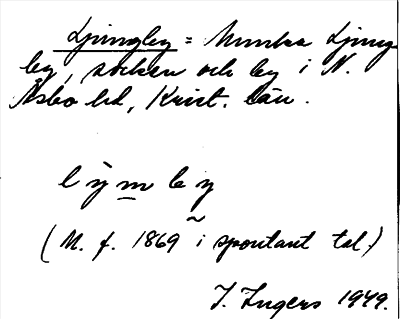 Ljungby = Munka Ljung
by, socken och by i N.
Åsbo hd, Krist. län.
lỳm̲by
(M. f. 1869 i spontant tal.)
I. Ingers 1949.